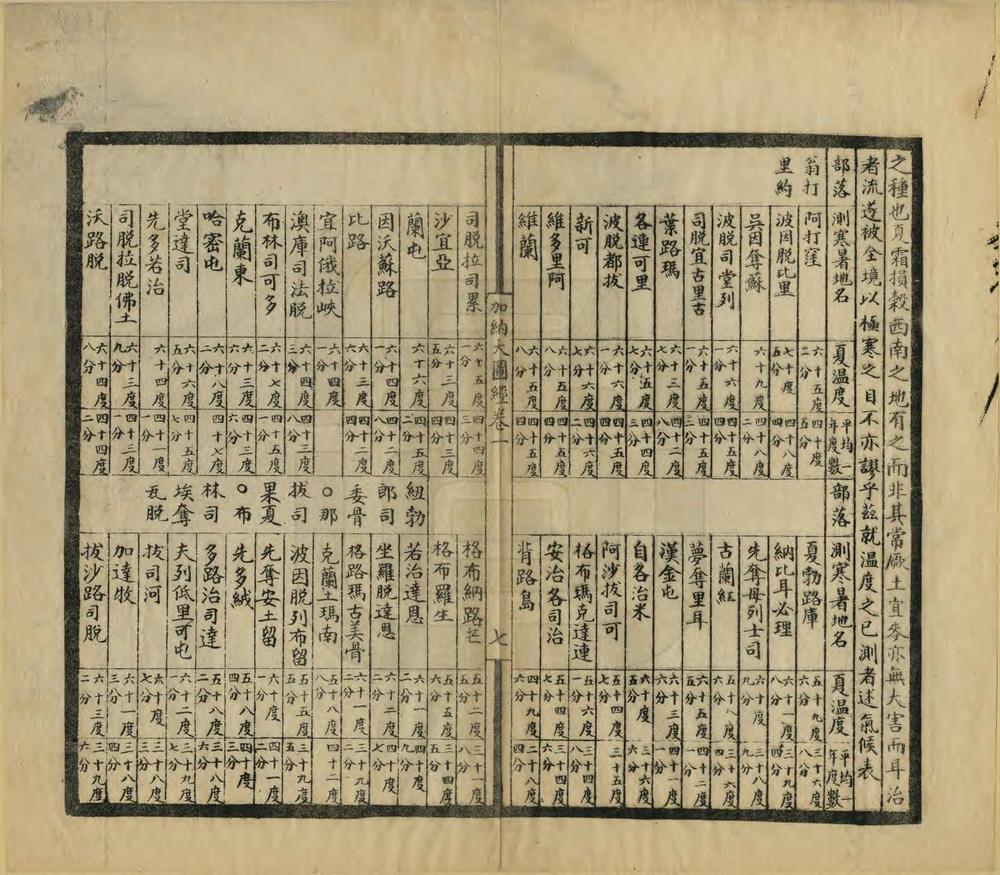 之種也夏霜損穀西南之地有之而非其常厥土宜麥亦無大害而耳治
者流遂被全境以極寒之目不亦謬乎茲就溫度之已測者述氣候表
部落 測寒暑地名 夏溫度 平均一年度數 部落 測寒暑地名 夏溫度 平均一年度數
翁打 阿打窪 六十五度二分 四十度五分 夏勃路庫 五十九度六分 三十六度八分
里約 波因脫比里 七十度五分 四十八度四分 納比耳必理 六十一度八分 三十九度四分
吳因奪蘇 六十九度 四十八度二分 先奪母列士司 六十度九分 三十八度九分
波脫司堂列 六十六度一分 四十五度四分 古蘭紅 五十八度六分 三十六度四分
司脫宜古里古 六十五度一分 四十五度三分 夢奪里耳 六十五度五分 四十二度一分
葉路瑪 六十三度七分 四十四度一分 漢金屯 六十三度六分 四十度一分
各連可里 六十五度七分 四十五度三分 自各治米 六十度五分 三十六度六分
波脫都拔 六十六度一分 四十四度四分 阿沙拔司可 五十四度七分 三十五度
新可 六十六度七分 四十六度二分 格布瑪克達連 五十六度一分 三十四度八分
維多里阿 六十五度八分 四十四度四分 安治各司治 五十四度七分 三十四度六分
維蘭 六十五度八分 四十五度四分 背路島 四十九度六分 二十八度四分
加納大圖經卷一 七
司脫拉司累 六十五度一分 四十四度三分 格布納路芒 五十二度一分 三十一度八分
沙宜亞 六十三度五分 四十三度四分 格布羅生 五十五度六分 三十四度五分
蘭屯 六十六度 四十五度二分 紐勃 若治達恩 六十一度二分 四十度九分
因沃蘇路 六十四度一分 四十二度四分 郎司 坐羅脫達恩 六十二度二分 四十度七分
比路 六十三度六分 四十二度四分 委骨 格路瑪古美骨 六十一度一分 四十度二分
宜阿俄拉峽 六十四度一分 四十四度一分 〇那 克蘭土瑪南 五十八度八分 四十二度
澳庫司法脫 六十四度三分 四十三度八分 拔司 波因脫列布留 五十五度五分 三十九度五分
布林司可多 六十七度二分 四十五度一分 果夏 先奪安土留 六十度一分 四十一度二分
克蘭東 六十四度六分 四十三度六分 〇布 先多絨 五十八度四分 四十度三分
哈密屯 六十八度二分 四十七度 林司 多路治司達 五十八度二分 三十四度六分
堂達司 六十六度五分 四十五度七分 埃奪 夫列低里可屯 六十二度一分 三十九度七分
先多若治 六十四度 四十一度一分 瓦脫 拔司河 六十度七分 三十八度三分
司脫拉脫佛土 六十三度九分 四十三度一分 加達牧 六十一度三分 三十八度四分
沃路脫 六十四度八分 四十四度二分 拔沙路司脫 六十三度二分 三十九度六分